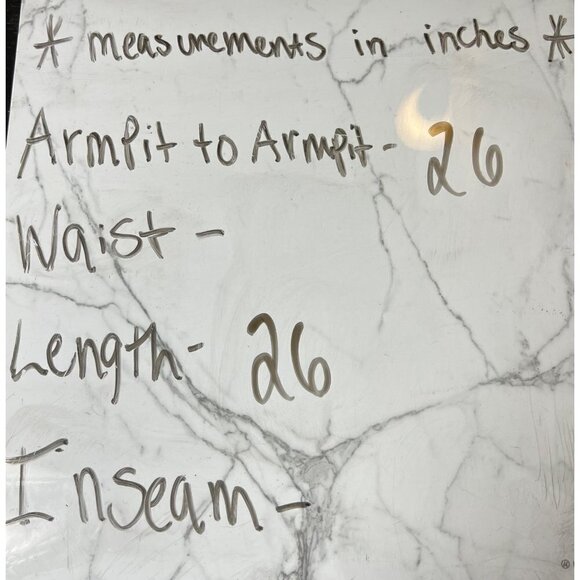 * measurements in inches *
Armpit to Armpit - 26
Waist -
Length - 26
Inseam -